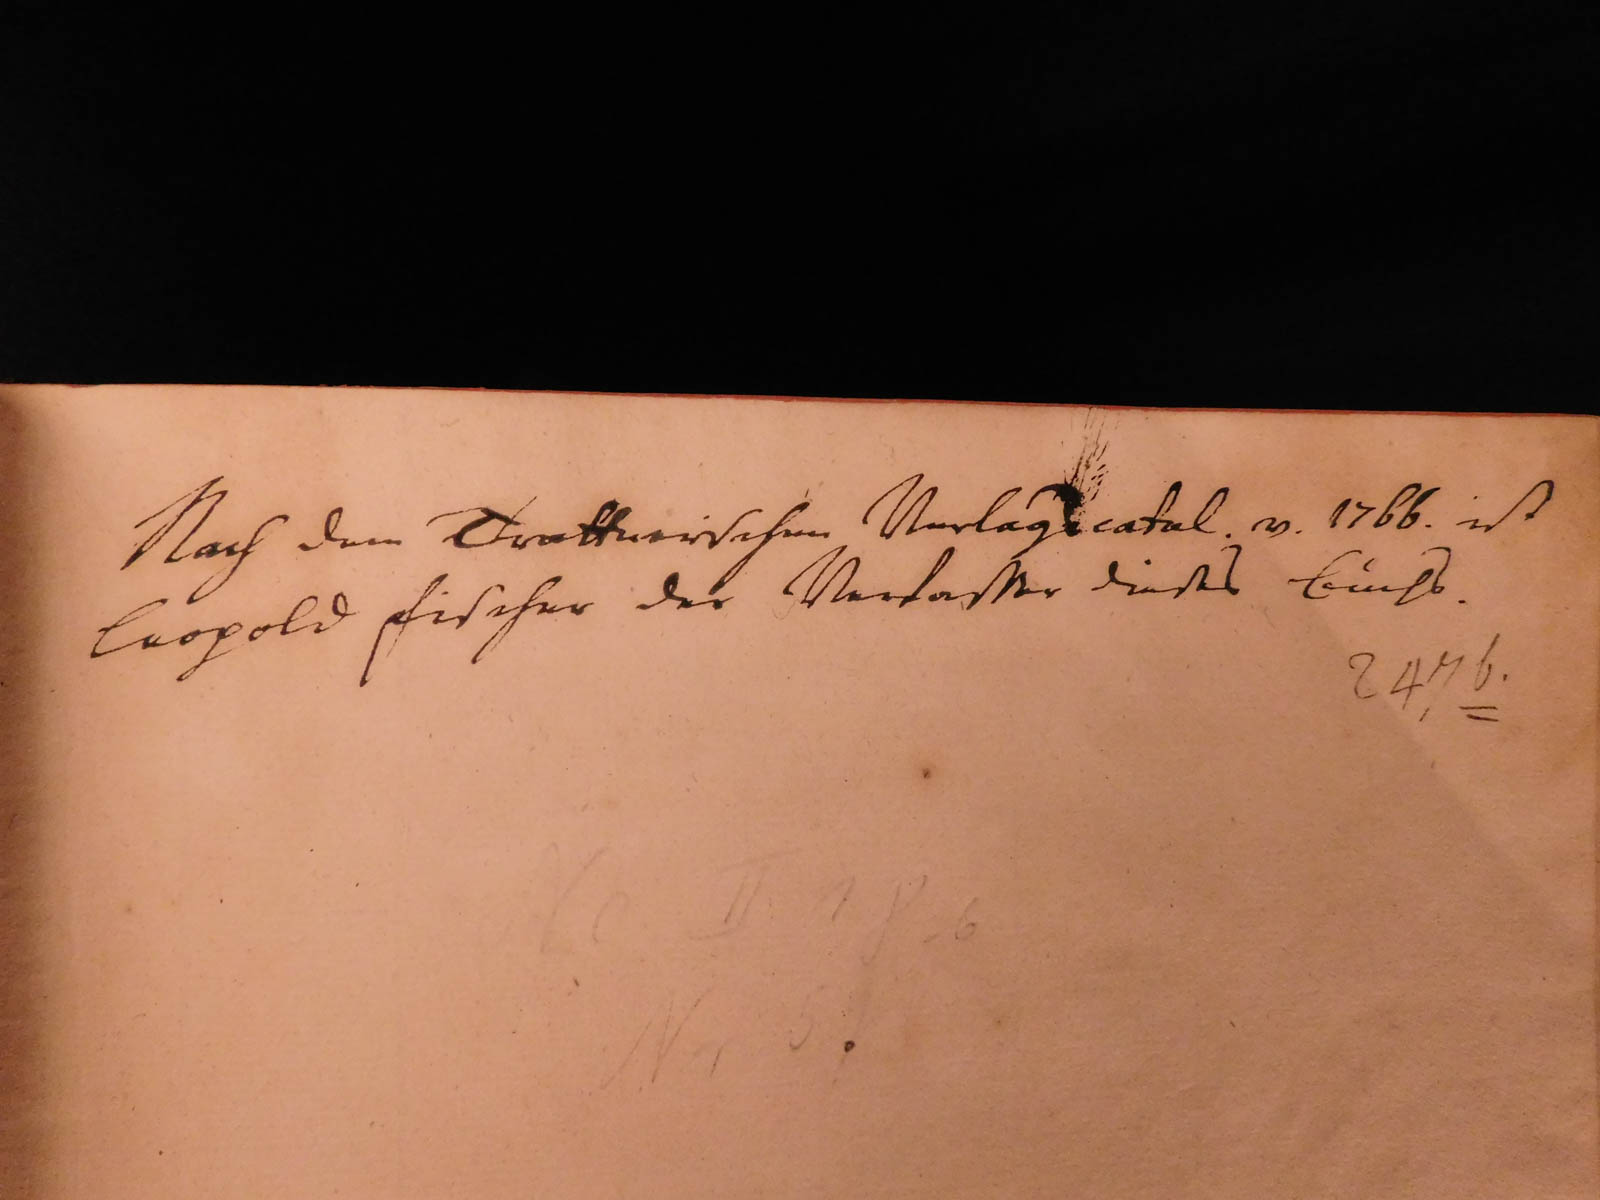 Nach dem Trattnerischen Verlagscatal. v. 1766. ist
Leopold Fischer der Verfasser dieses Buchs.
247b.
II
No 5